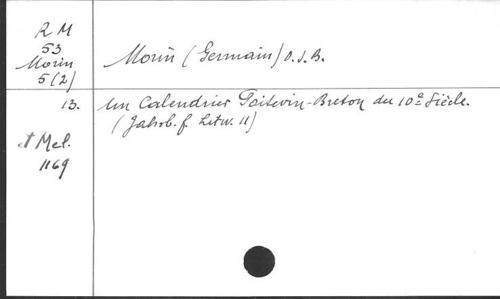 R M
53
Morin
5(2)
Morin (Germain) O.S.B.
13.
Un Calendrier Poitevin-Breton du 10e Siècle.
(Jahrb. f. Litw. 11)
et Mel.
1169